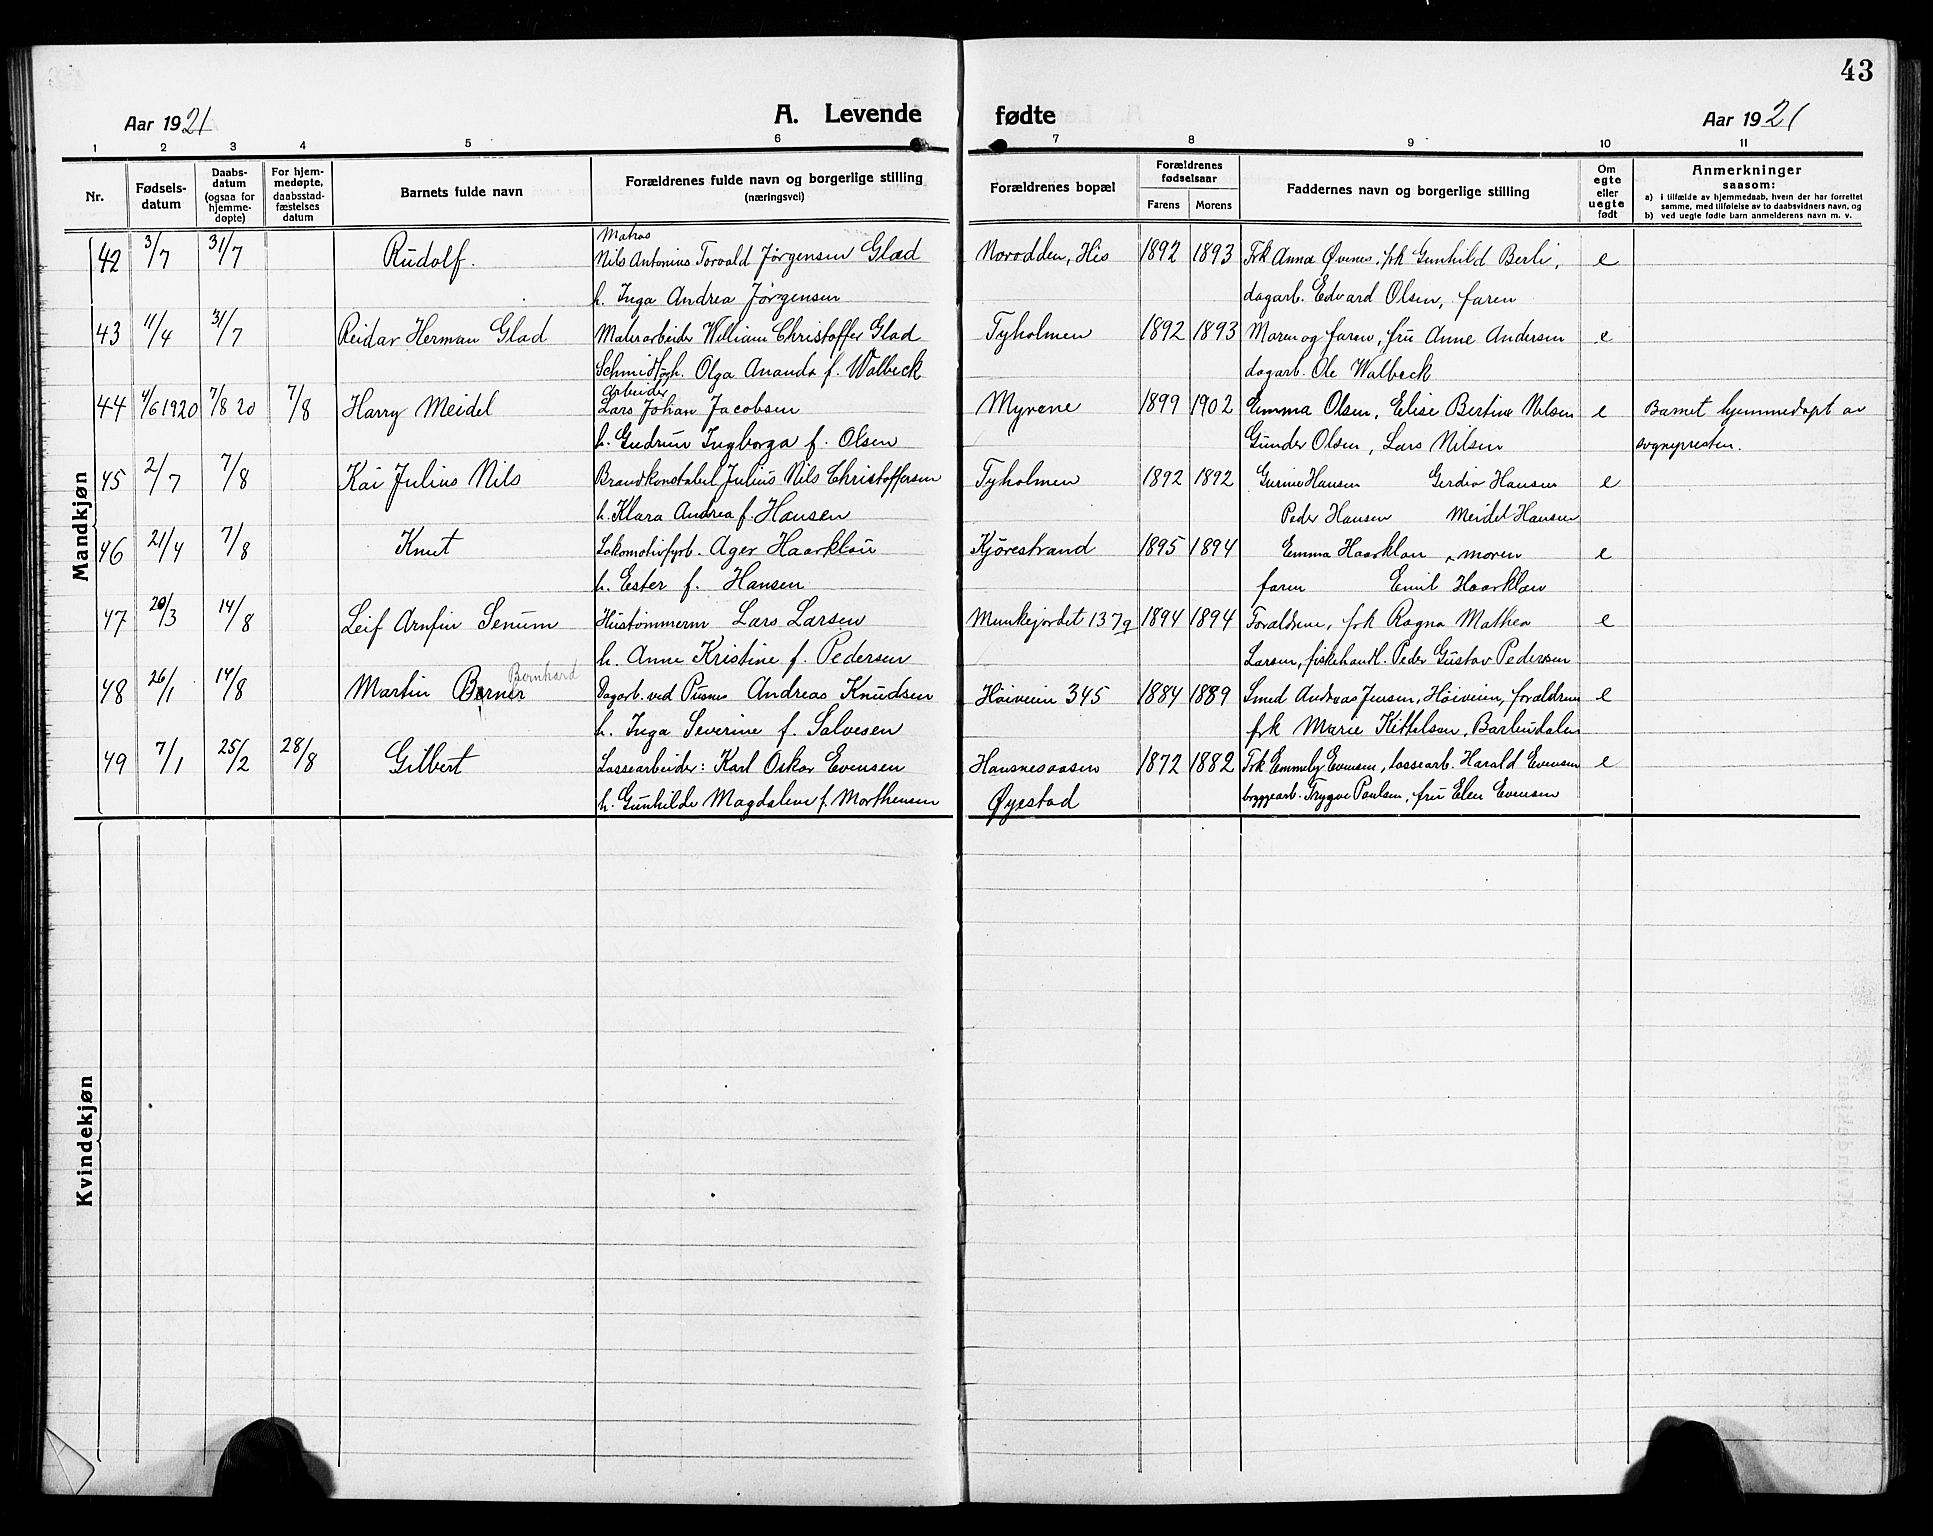 43
Aar 1921 A. Levende fødte Aar 1921
1 2 3 4 5 6 7 8 9 10 11
Nr.
Fødsels-
datum
Daabs-
datum
(ogsaa for
hjemme-
døpte)
For hjem-
medøpte,
daabsstad-
fæstelses
datum
Barnets fulde navn
Forældrenes fulde navn og borgerlige stilling
(næringsvei)
Forældrenes bopæl
Forældrenes
fødselsaar
Farens Morens
Faddernes navn og borgerlige stilling
Om
egte
eller
uegte
født
Anmerkninger
saasom:
a) i tilfælde av hjemmedaab, hvem der har forrettet
samme, med tilføielse av to daabsvidners navn, og
b) ved uegte fødte barn anmelderens navn m. v.
Mandkjøn
Matros
42 3/7 31/7 Rudolf. Nils Antonius Torvald Jørgensen Glad Norodden, His 1892 1893 Frk Anna Øvenes, frk Gunhild Berli, e
h. Inga Andrea Jørgensen dagarb. Edvard Olsen, faren
43 11/4 31/7 Reidar Herman Glad Malerarbeider William Christoffer Glad Tyholmen 1892 1893 Moren og faren, fru Anne Andersen e
Schmidt og h. Olga Ananda f. Walbeck dagarb. Ole Walbeck
Arbeider
44 4/6 1920 7/8 20 7/8 Harry Meidel Lars Johan Jacobsen Myrene 1899 1902 Emma Olsen, Elise Bertine Nilsen e Barnet hjemmedøpt av
h. Gudrun Ingborga f. Olsen Gunder Olsen, Lars Nilsen sognepresten.
45 2/7 7/8 Kai Julius Nils Brandkonstabel Julius Nils Christoffersen Tyholmen 1892 1892 Gurine Hansen Gerdia Hansen e
h. Klara Andrea f. Hansen Peder Hansen Meidel Hansen
46 21/4 7/8 Knut Lokomotivfyrb. Ager Haarklau Kjörestrand 1895 1894 Emma Haarklau, moren e
h. Ester f. Hansen faren Emil Haarklau
47 20/3 14/8 Leif Arnfin Senum Hustømmerm Lars Larsen Munkejordet 137g 1894 1894 Forældrene, frk Ragna Mathea e
h. Anne Kristine f. Pedersen Larsen, fiskehandl. Peder Gustav Pedersen
Bernhard
48 26/1 14/8 Martin Berner Dagarb. ved Pusnes Andreas Knudsen Höiveien 345 1884 1889 Smed Andreas Jensen, Höiveien, forældrene e
h. Inga Severine f. Salvesen frk Marie Kittelsen, Barbudalen
49 7/1 25/2 28/8 Gilbert Lossearbeider: Karl Oskar Evensen Hausnesaasen 1872 1882 Frk Emmely Evensen, lossearb. Harald Evensen e
h. Gunhilde Magdalene f. Morthensen Øyestad bryggearb. Trygve Paulsen, fru Elen Evensen
Kvindekjøn